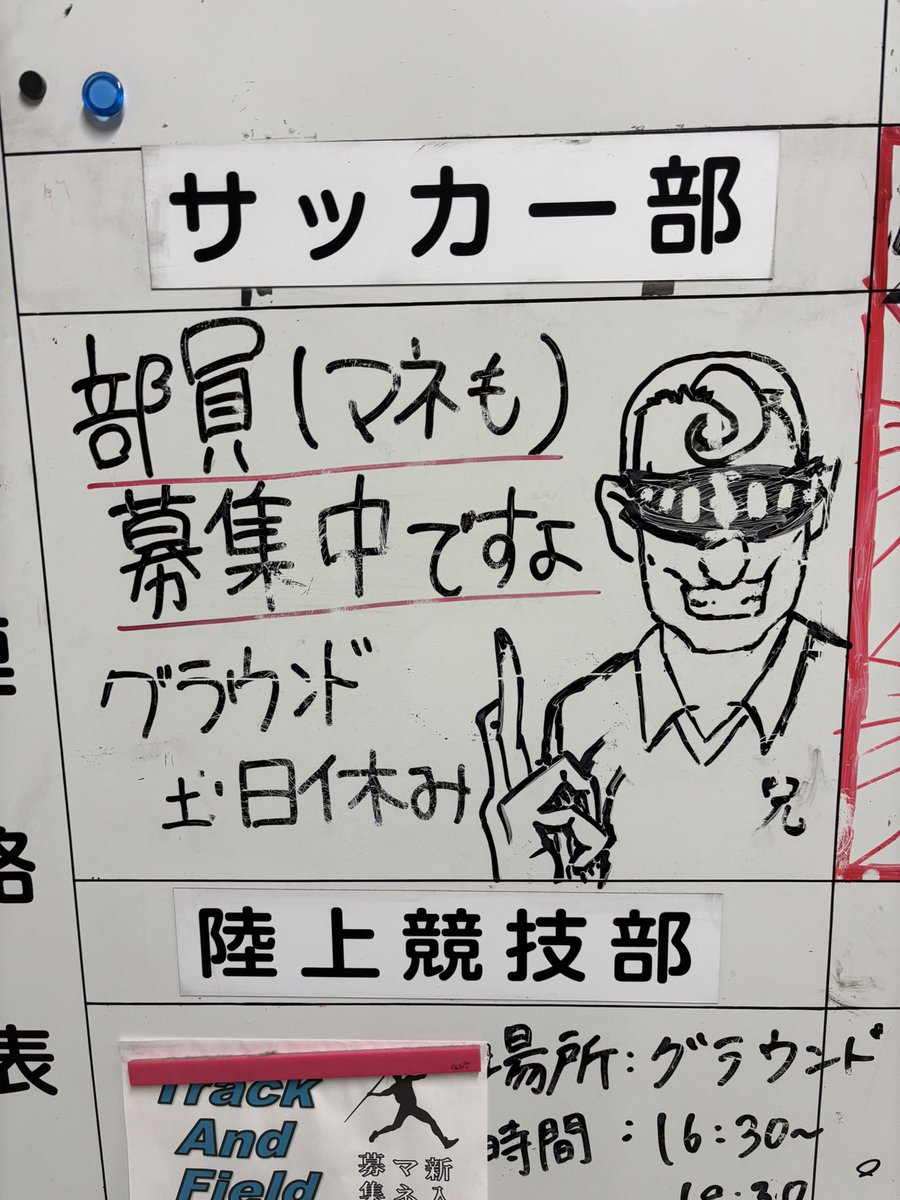 サッカー部
部員(マネも)
募集中ですよ
グラウンド
土日休み
兄
陸上競技部
場所:グラウンド
時間:16:30~
Track
And
Field
新入
マネ
募集
表